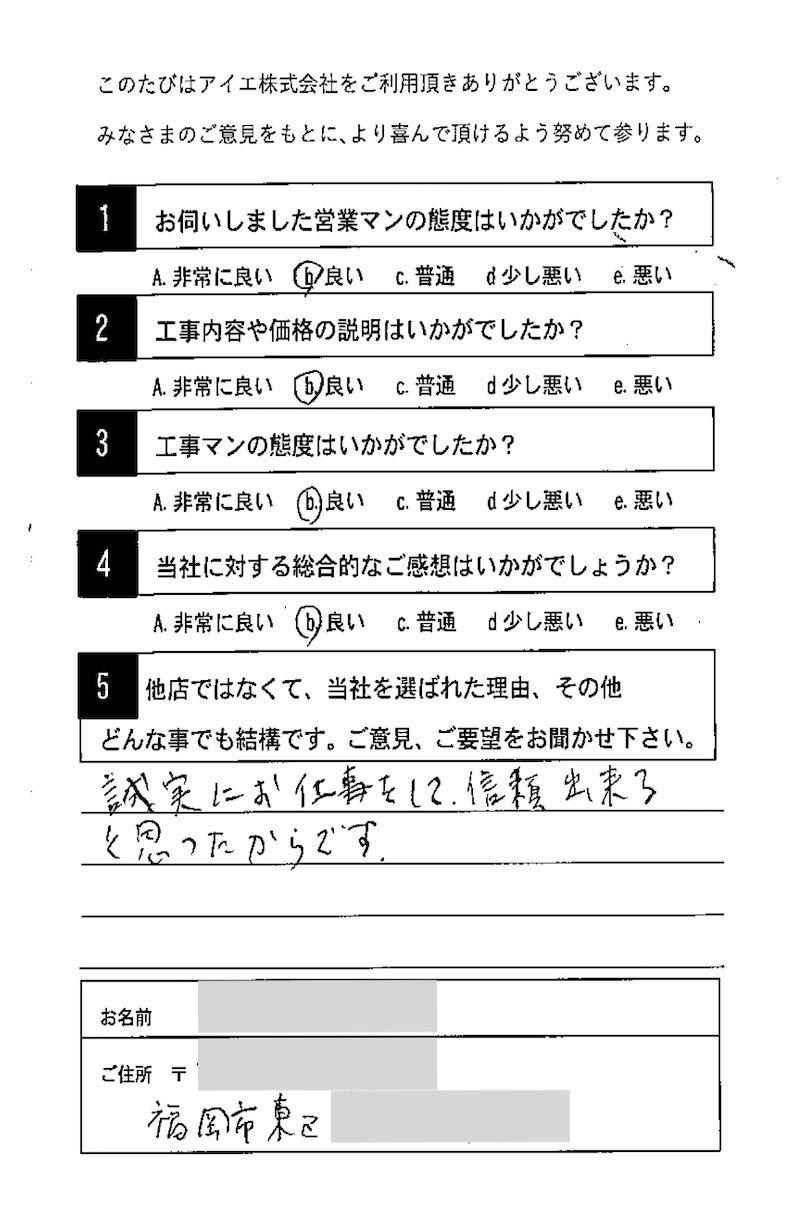 このたびはアイエ株式会社をご利用頂きありがとうございます。
みなさまのご意見をもとに、より喜んで頂けるよう努めて参ります。
1 お伺いしました営業マンの態度はいかがでしたか？
A. 非常に良い b. 良い c. 普通 d 少し悪い e. 悪い
2 工事内容や価格の説明はいかがでしたか？
A. 非常に良い b. 良い c. 普通 d 少し悪い e. 悪い
3 工事マンの態度はいかがでしたか？
A. 非常に良い b. 良い c. 普通 d 少し悪い e. 悪い
4 当社に対する総合的なご感想はいかがでしょうか？
A. 非常に良い b. 良い c. 普通 d 少し悪い e. 悪い
5 他店ではなくて、当社を選ばれた理由、その他
どんな事でも結構です。ご意見、ご要望をお聞かせ下さい。
誠実にお仕事をして、信頼出来る
と思ったからです。
お名前
ご住所 〒
福岡市東区